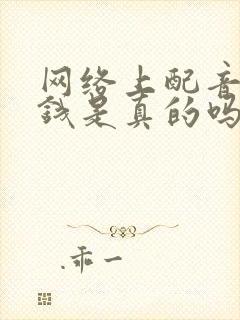 网络上配音
钱是真的吗
.乖一